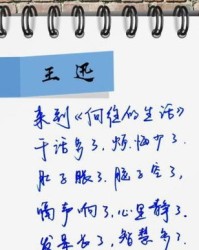 王迅
来到《向往的生活》
干活多了、烦恼少了
肚子胀了、脑子空了,
嗝声响了,心里静了
发呆长了,智慧多了